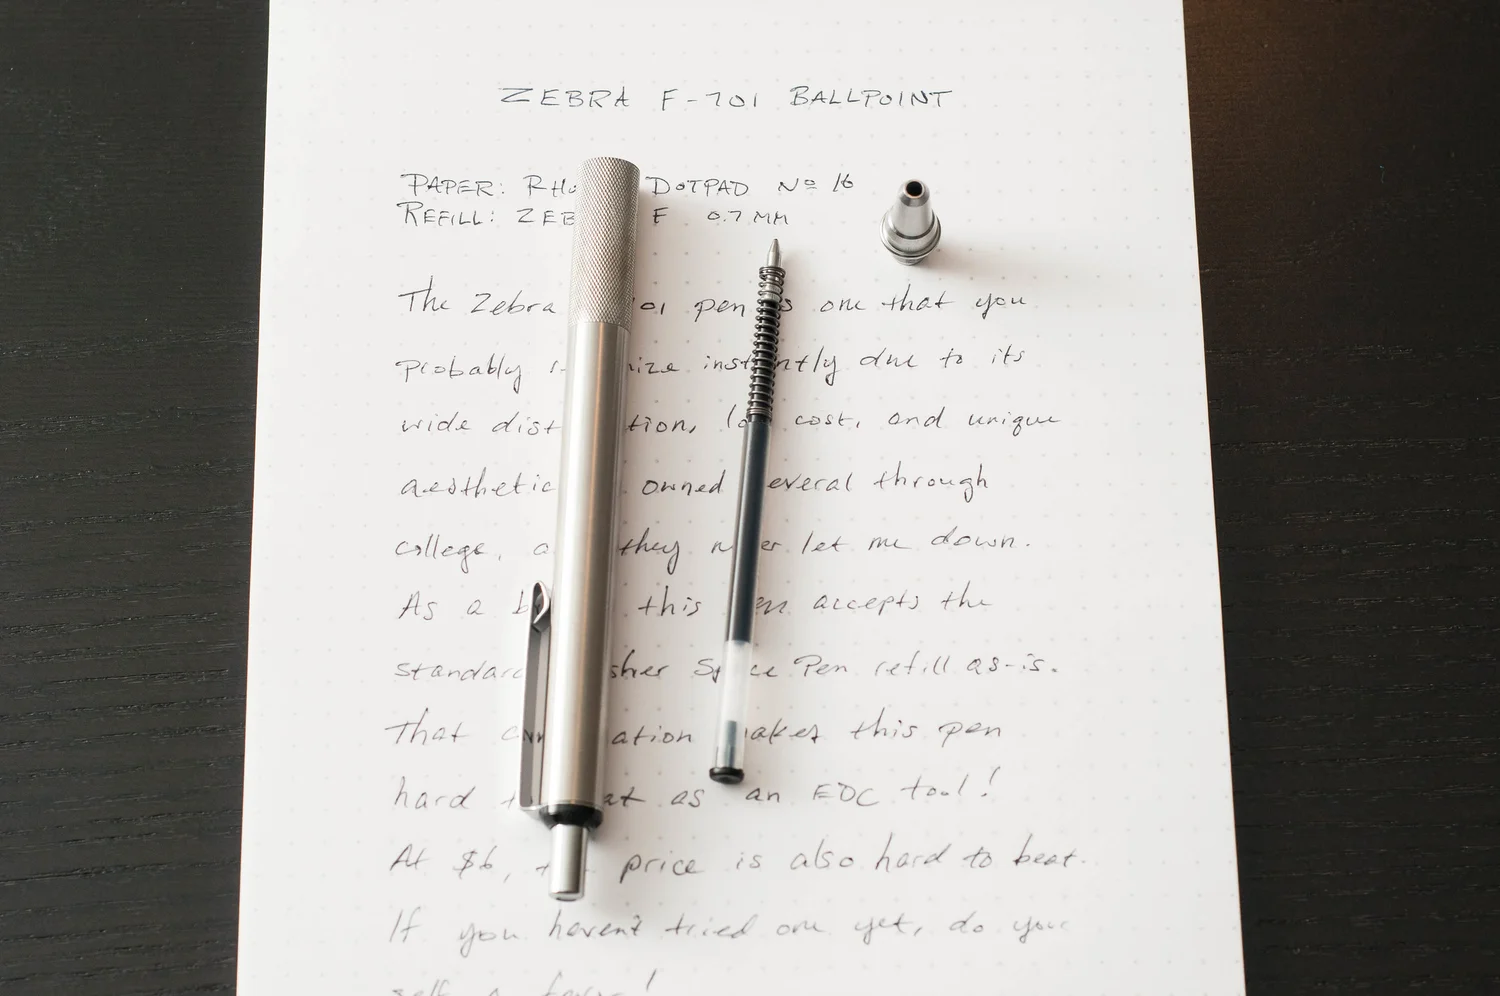 ZEBRA F-701 BALLPOINT
PAPER: RHO DOTPAD Nº 16
REFILL: ZEB F 0.7 MM
The Zebra 701 pen is one that you
probably instantly due to its
wide dist tion, low cost, and unique
aesthetic owned several through
college, they never let me down.
As a this pen accepts the
standard Fisher Space Pen refill as-is.
That ation makes this pen
hard at as an EDC tool!
At $6, price is also hard to beat.
If you haven't tried one yet, do your
self a favor!